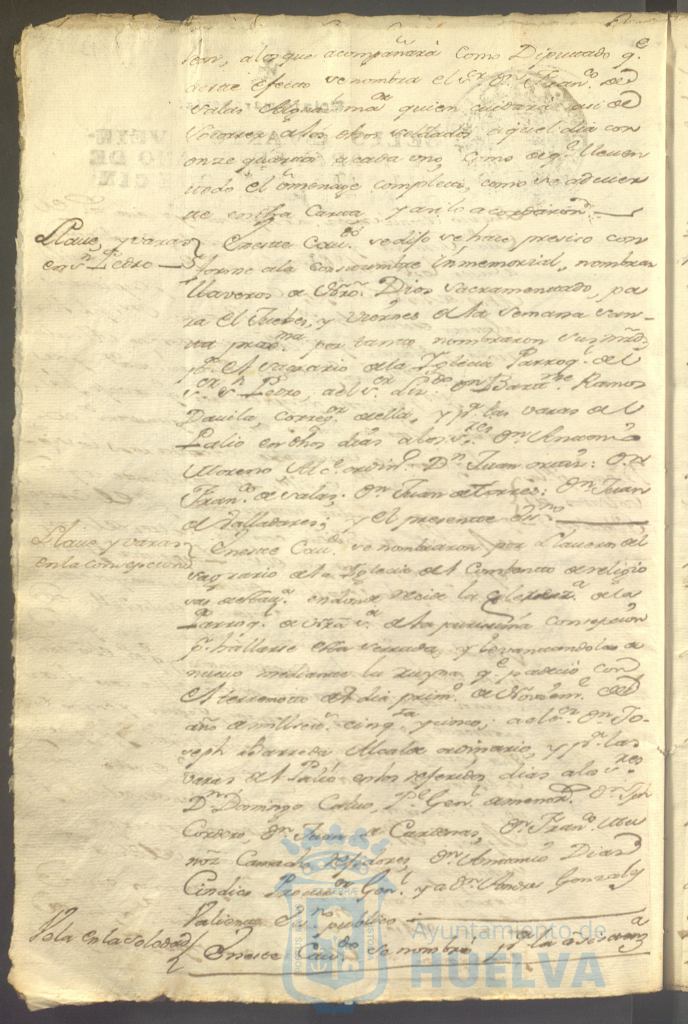 sean, a los que acompañará como Diputado q.e
a este efecto se nombra el S.r D.n Fran.co de
quien cuidará asi de
socorrer a los dhos soldados aquel dia con
onze quartos a cada uno, como de q.e lleven
todo el omenage completo, como se advier
te en dha Carta, y asi lo acordaron
Llave, y varas
en S.n Pedro
En este Cav.do se dijo se hace preciso con
forme a la costumbre inmemorial, nombrar
llaveros de Ntro. Dios Sacramentado, pa
ra el Jueves, y Viernes de la Semana San-
ta prox.ma por tanto nombraron sus mds.
p.a el sagrario de la Yglecia Parroq.l de el
S.r S.n Pedro, a el S.r Liz.do D.n Bar.me Ramos
Davila, correg.or de ella, y p.a las varas de el
Palio en dhos dias a los S.res D.n Antonio
Moreno Alc.e ordin.o D.n Juan D.n
Fran.co de Valas, D.n Juan de Torres; D.n Juan
de Valladares; y el presente Ss.no
Llave y varas
en la concepcion
En este Cav.do se nombraron por Llaveros del
sagrario de la Yglecia del Combento de religio
sas de esta v.a en donde recide la
Parroq.l de Ntra S.ra de la purissima Concepcion
p.r hallarse esta serrada, y levantandola de
nuevo mediante la ruyna q.e padecio con
el terremoto del dia prim.o de Noviem.e del
año de mill setec.s cinq.ta y cinco; a el S.r D.n Jo-
seph Barreda Alcalde ordinario, y p.a las
varas del Palio en los referidos dias a los S.res
D.n Domingo Calvo, P.e Gen.l de menor.s D.n
Cordero, D.n Juan de Cardenas, D.n Fran.co Mu
ñoz Camacho rejidores, D.n Antonio Dias
Cindico Procurador Gen.l y a D.n Andres Gonzales
Valiente Ss.no publico
Vela en la soledad
En este Cav.do se nombra p.a la
Ayuntamiento de
HUELVA